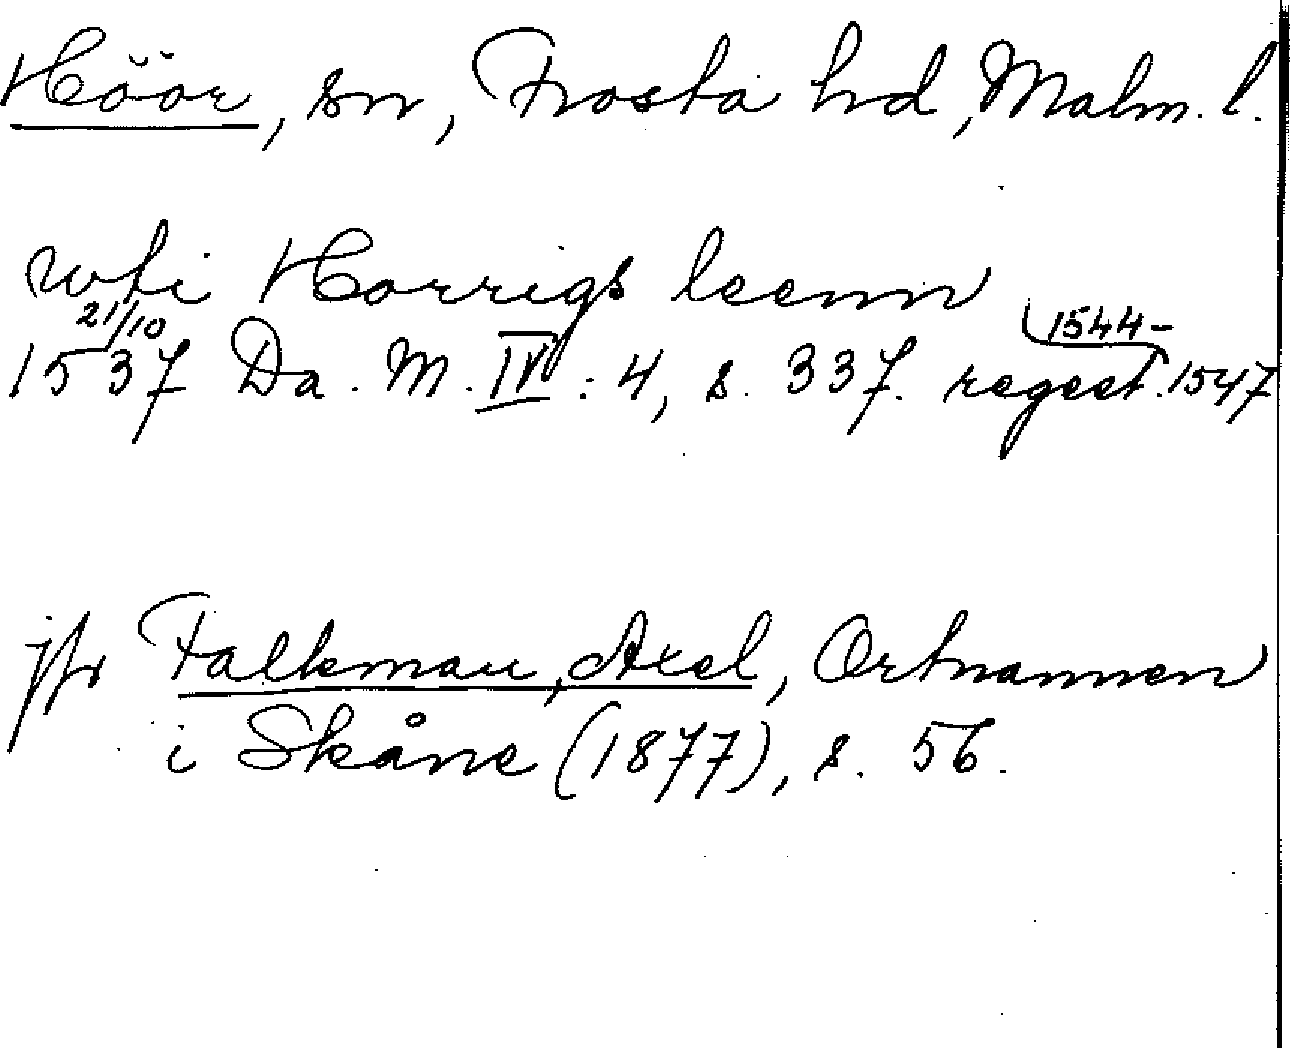 Höör, sn, Frosta hd, Malm. l.
wti Horrigs leenn
21/10 1544-
1537 Da. M. IV: 4, s. 337. regest. 1547
jfr Falkman, Axel, Ortnamnen
i Skåne (1877), s. 56.